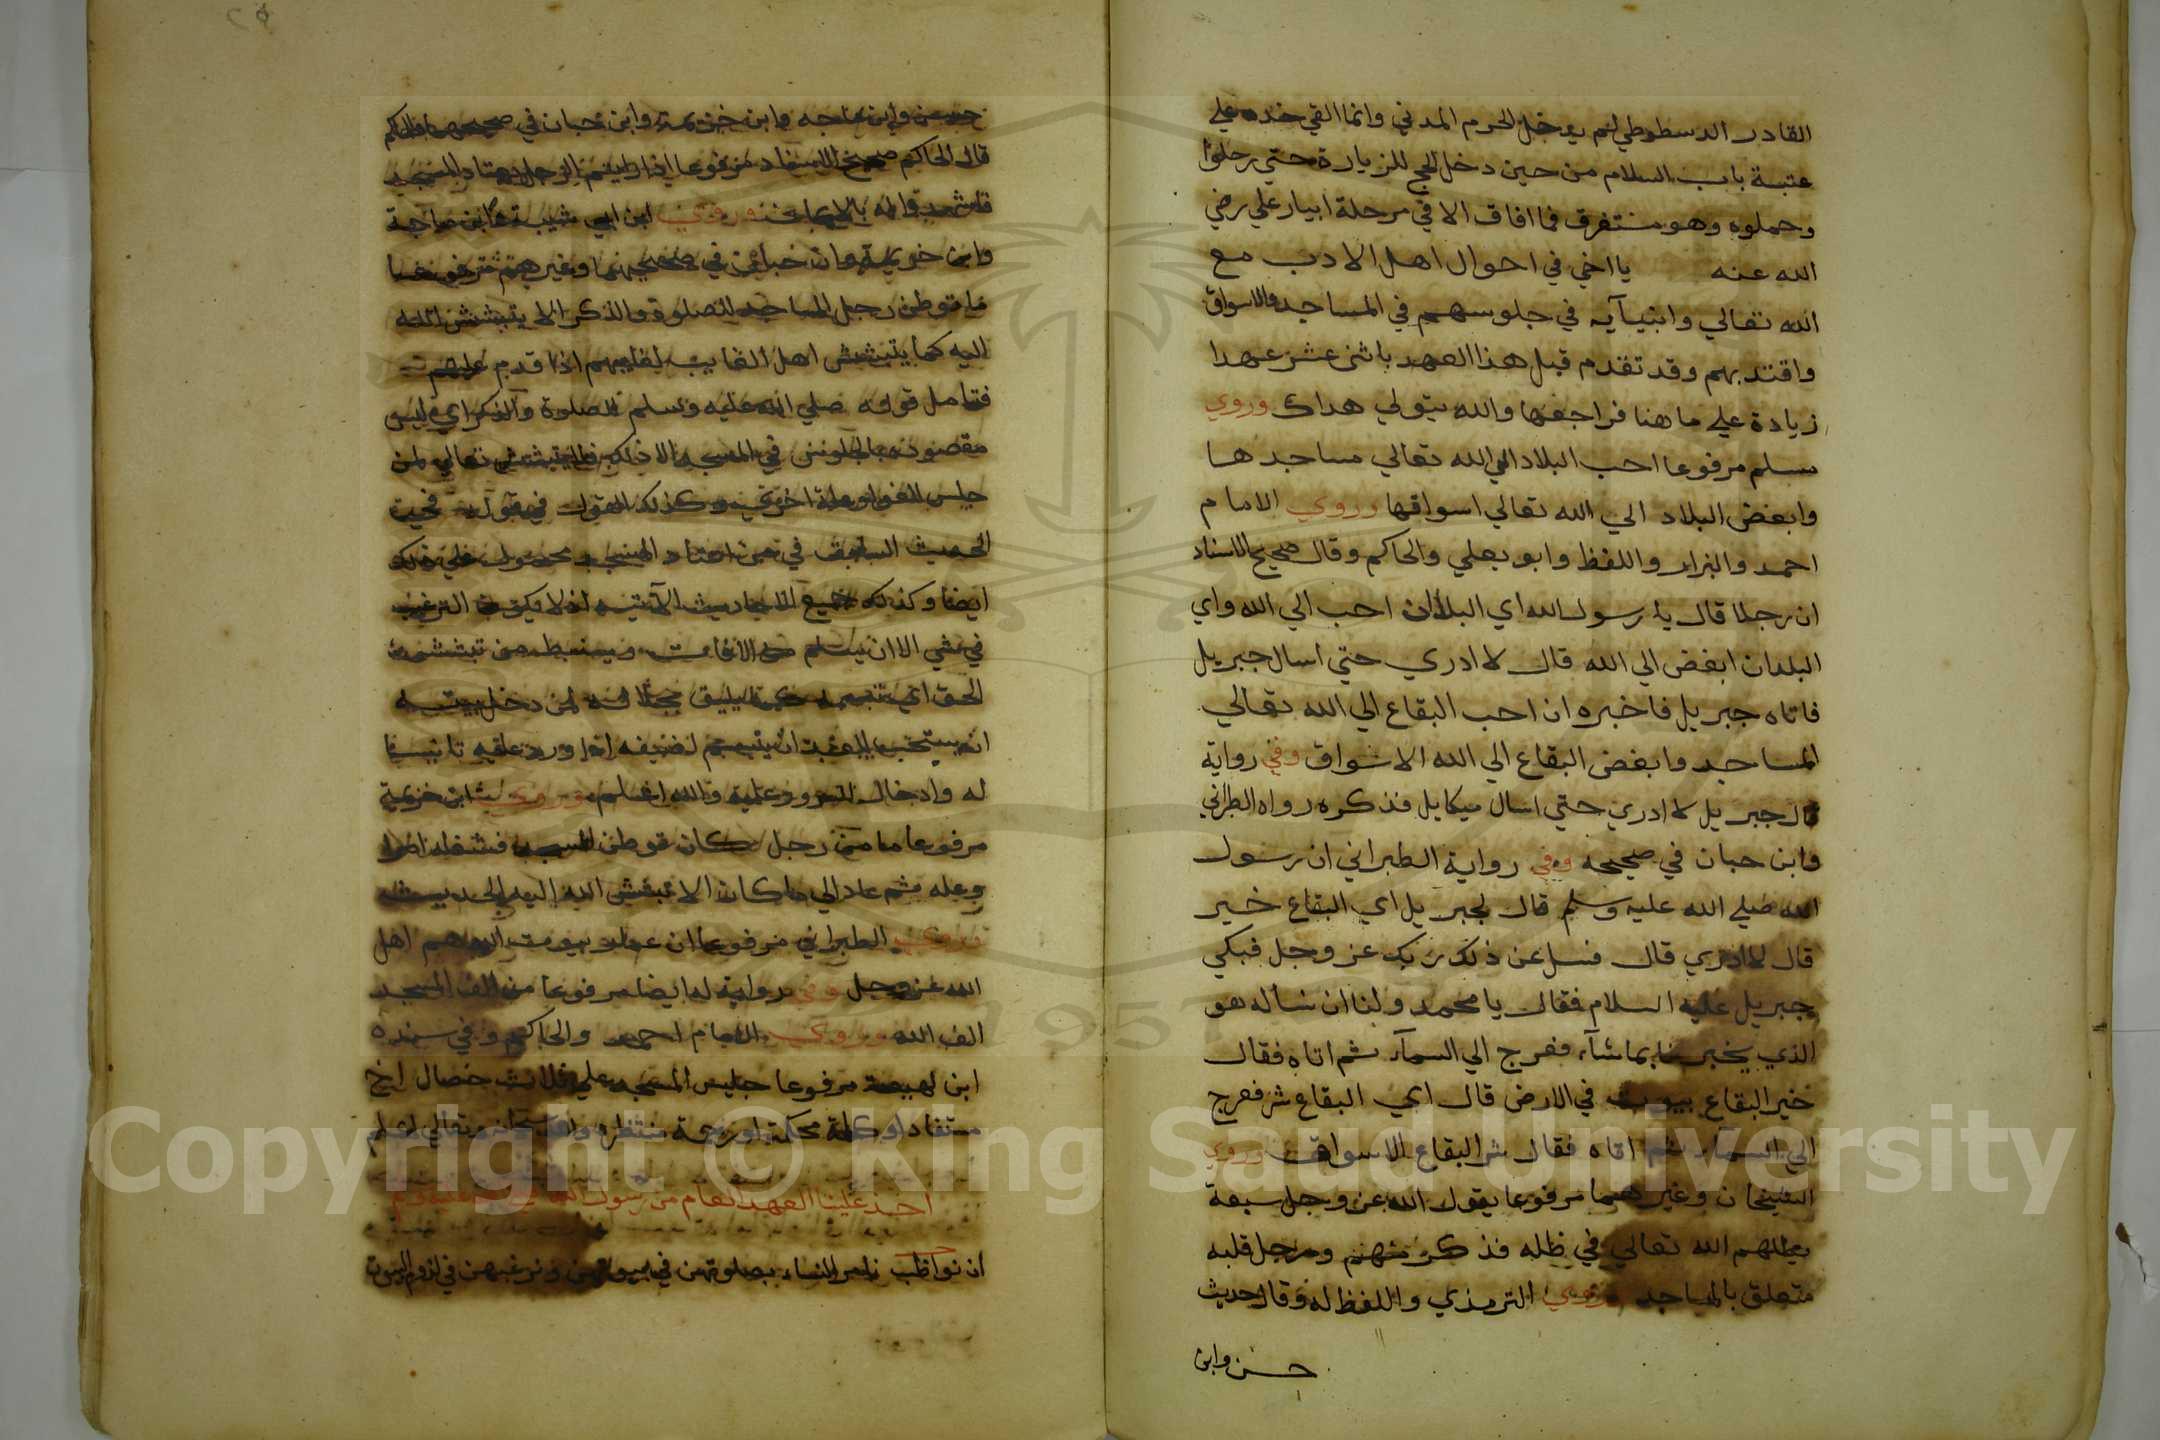 القادر الدسطوطي لم يدخل الحرم المدني وانما القي خده علي
عتبة باب السلام من حين دخل الحج للزيارة حتي رحلوا
وحملوه وهو مستغرق فما افاق الا في مرحلة ابيار علي رضي
الله عنه يا اخي في احوال اهل الادب مع
الله تعالي وانبيآيه في جلوسهم في المساجد والاسواق
واقتد بهم وقد تقدم قبل هذا العهد باثني عشر عهدا
زيادة علي ما هنا فراجعها والله يتولي هداك وروي
مسلم مرفوعا احب البلاد الي الله تعالي مساجدها
وابغض البلاد الي الله تعالي اسواقها وروي الامام
احمد والبزار واللفظ وابو يعلي والحاكم وقال صحيح الاسناد
ان رجلا قال يا رسول الله اي البلدان احب الي الله واي
البلدان ابغض الي الله قال لا ادري حتي اسال جبريل
فاتاه جبريل فاخبره ان احب البقاع الي الله تعالي
المساجد وابغض البقاع الي الله الاسواق وفي رواية
قال جبريل لا ادري حتي اسال ميكايل فذكره رواه الطبراني
وابن حبان في صحيحه وفي رواية الطبراني ان رسول
الله صلي الله عليه وسلم قال لجبريل اي البقاع خير
قال لا ادري قال فسل عن ذلك ربك عز وجل فبكي
جبريل عليه السلام فقال يا محمد ولنا ان نسأله هو
الذي يخبرنا بما شآء فعرج الي السمآء ثم اتاه فقال
خير البقاع بيوت في الارض قال اي البقاع شر فعرج
الي السمآء ثم اتاه فقال شر البقاع الاسواق وروي
الشيخان وغيرهما مرفوعا يقول الله عز وجل سبعة
يظلهم الله تعالي في ظله فذكر منهم ورجل قلبه
متعلق بالمساجد وروي الترمذي واللفظ له وقال حديث
حسن وابن
حسن وابن ماجه وابن خزيمة وابن حبان في
قال الحاكم صحيح الاسناد مرفوعا اذا رايتم الرجل يعتاد المسجد
فاشهدوا له بالايمان وروي ابن ابي شيبة وابن ماجة
وابن خزيمة وابن حبان في صحيحيهما وغيرهم مرفوعا
ما توطن رجل المساجد للصلوة والذكر الا يتبشش الله
اليه كما يتبشش اهل الغايب لغايبهم اذا قدم عليهم
فتامل قوله صلي الله عليه وسلم للصلوة والذكر اي ليس
مقصوده بالجلوس في المسجد الا ذلك فلا يتبشش تعالي لمن
جلس للغو او علة اخري وكذلك القول في قوله في
الحديث السابق في من اعتاد المسجد محمول علي ذلك
ايضا وكذلك جميع الاحاديث الآتية اذ لا يكون الترغيب
في شي الا ان يسلم من الافات وتبشش
الحق اي تبسمه كما يليق بجلاله لمن دخل بيته
انه يستحب للعبد ان يتبسم لضيفه اذا ورد عليه تانيسا
له وادخال السرور عليه والله اعلم وروي ابن خزيمة
مرفوعا ما من رجل كان توطن المسجد فشغله امر او
علة ثم عاد الي ما كان الا تبشش الله اليه الحديث
وروي الطبراني مرفوعا ان عمار بيوت الله هم اهل
الله عز وجل وفي رواية له ايضا مرفوعا من الف المسجد
الفه الله وروي الامام احمد والحاكم وفي سنده
ابن لهيعة مرفوعا جليس المسجد علي ثلاث خصال اخ
مستفاد او كلمة محكمة او رحمة منتظرة والله سبحانه وتعالي اعلم
اخذ علينا العهد العام من رسول الله صلي الله عليه وسلم
ان نواظب نامر النساء بصلوتهن في بيوتهن ونرغبهن في لزوم البيوت